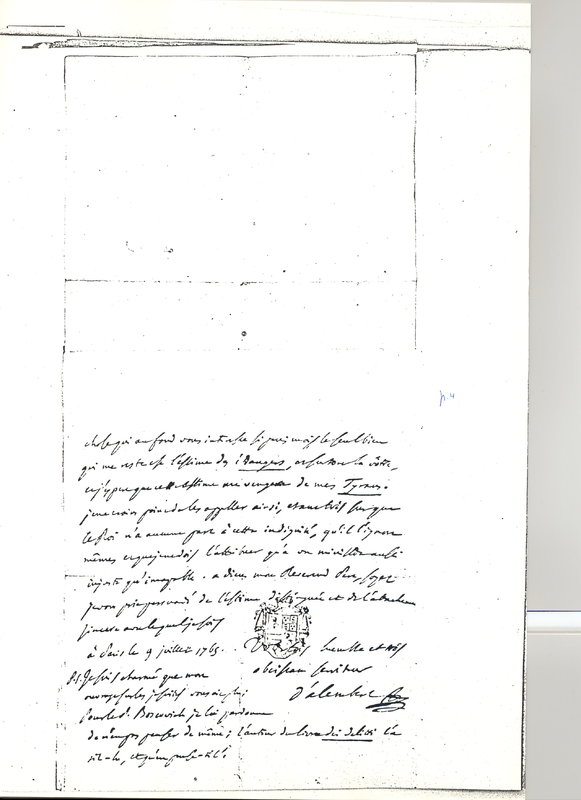 p. 4
chose qui au fond vous intéresse si peu mais le seul bien
qui me reste est l'estime des étrangers, et surtout la vôtre,
et j'espère que cette estime me vengera de mes Tyrans.
je ne crains point de les appeller ainsi, étant très sur que
le Roi n'a aucune part à cette indignité, qu'il l'ignore
même, et que je ne dois l'attribuer qu'à un ministre aussi
injuste qu'incapable. adieu, mon Reverend Pere, soyez
je vous prie persuadé de l'estime distinguée et de l'attachement
sincere avec lequel je suis
à Paris le 9 juillet 1765.
Votre très humble et très
obeissant serviteur
D'alembert
P.S. Je suis charmé que mon
ouvrage sur les jésuites vous ait plu;
pour le P. Boscovich je lui pardonne
de n'en pas penser de même; l'auteur du livre dei delitti l'a
-il lu, et qu'en pense-t-il?